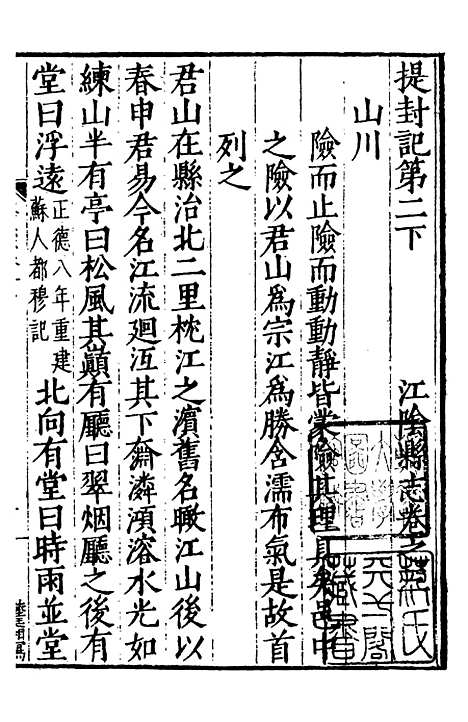 提封記第二下　江陰縣志卷之三
山川
險而止險而動動靜皆蒙險其理具矣邑中
之險以君山爲宗江爲勝含濡布氣是故首
列之
君山在縣治北二里枕江之濱舊名瞰江山後以
春申君易今名江流迴沍其下奫潾澒溶水光如
練山半有亭曰松風其巔有廳曰翠烟廳之後有
堂曰浮遠正德八年重建蘇人都穆記北向有堂曰時雨並堂
天一閣
藏書